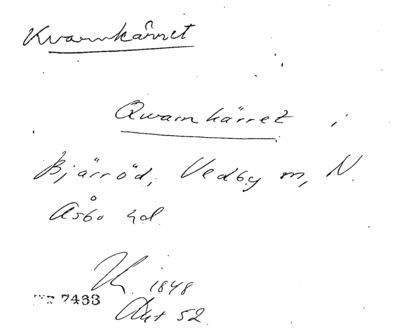 Kvarnkärret
Qvarnkärret i
Bjärröd, Vedby sn, N.
Åsbo hd.
1848
Akt 52
7433